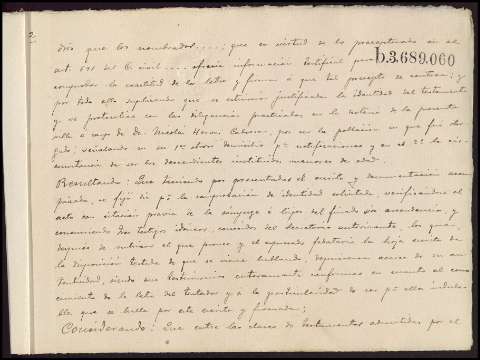 2
dió que los nombrados....., que en virtud de lo preceptuado en el
art. 691 del C. civil..... ofrecía información testifical para
b.3.689.060
comprobar la exactitud de la letra y firma á que tal precepto se contrae; y
por todo ello suplicando que se estimara justificada la identidad del testamento
y se protocolice con las diligencias practicadas en la notaría de la presente
villa á cargo de Dn. Nicolás Cabrera, por ser la población en que fué otor-
gado; señalando en un 1er otrosí domicilio pa notificaciones y en el 2o la cir-
cunstancia de ser los descendientes instituidos menores de edad.
Resultando: Que teniendo por presentados el escrito y documentación acom-
pañada, se fijó día pa la comprobación de identidad solicitada, verificándose el
acto con citación previa de la cónyuge é hijos del finado sin asistencia, y
concurriendo tres testigos idóneos, conocidos del Secretario autorizante, los que,
después de rubricar el que provee y el expresado fedatario la hoja escrita de
la disposición testada de que se viene hablando, depusieron acerca de su au-
tenticidad, siendo sus testimonios enteramente conformes en cuanto al cono-
cimiento de la letra del testador y á la particularidad de ser pa ellos induda-
ble que se halla por este escrito y firmado;
Considerando: Que entre las clases de testamentos admitidos por el